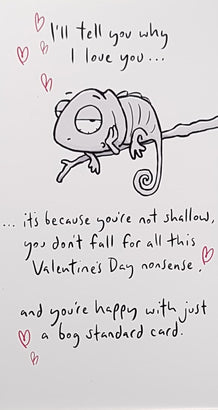 I'll tell you why
I love you...
... it's because you're not shallow,
you don't fall for all this
Valentine's Day nonsense,
and you're happy with just
a bog standard card.